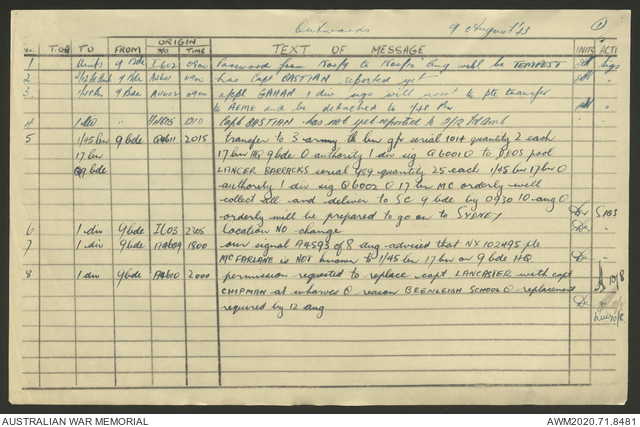 Outwards 9 August '43
ORIGIN
NO T.O.R TO FROM NO TIME TEXT OF MESSAGE INITS ACTI
1 Units 9 Bde I602 0900 Password from Noon to Noon Aug will be TEMPEST Sigs
2 2/12 Fd Amb 9 Bde A4601 0900 has Capt BASTIAN reported yet
3 9 Bde A4602 0900 appl GAHAN 1 div sigs will want to pte transfer
to AEME and be detached to
4 1 div 1210 Capt BASTIAN has not yet reported to 2/12 Fd Amb
5 1/45 bn 9 bde Q4611 2015 transfer to 3 army bn serial 1014 quantity 2 each
17 bn 17 bn HQ 9 bde O authority 1 div sig Q6001 O to DDOS pool
9 bde LANCER BARRACKS serial 459 quantity 25 each 1/45 bn 17 bn O
authority 1 div sig Q6002 O 17 bn MC orderly will
collect all and deliver to SC 9 bde by 0930 10 aug O
orderly will be prepared to go on to SYDNEY
6 1 div 9 bde I603 2305 Location NO change
7 1 div 9 bde A4609 1800 our signal A4593 of 8 aug advised that NX 102495 pte
MCFARLANE is NOT known to 1/45 bn 17 bn or 9 bde HQ.
8 1 div 9 bde A4610 2000 permission requested to replace capt LANCASTER with capt 10/8
CHIPMAN at wharves O reason BEENLEIGH SCHOOL O replacement
required by 12 aug 10/8.
AUSTRALIAN WAR MEMORIAL AWM2020.71.8481